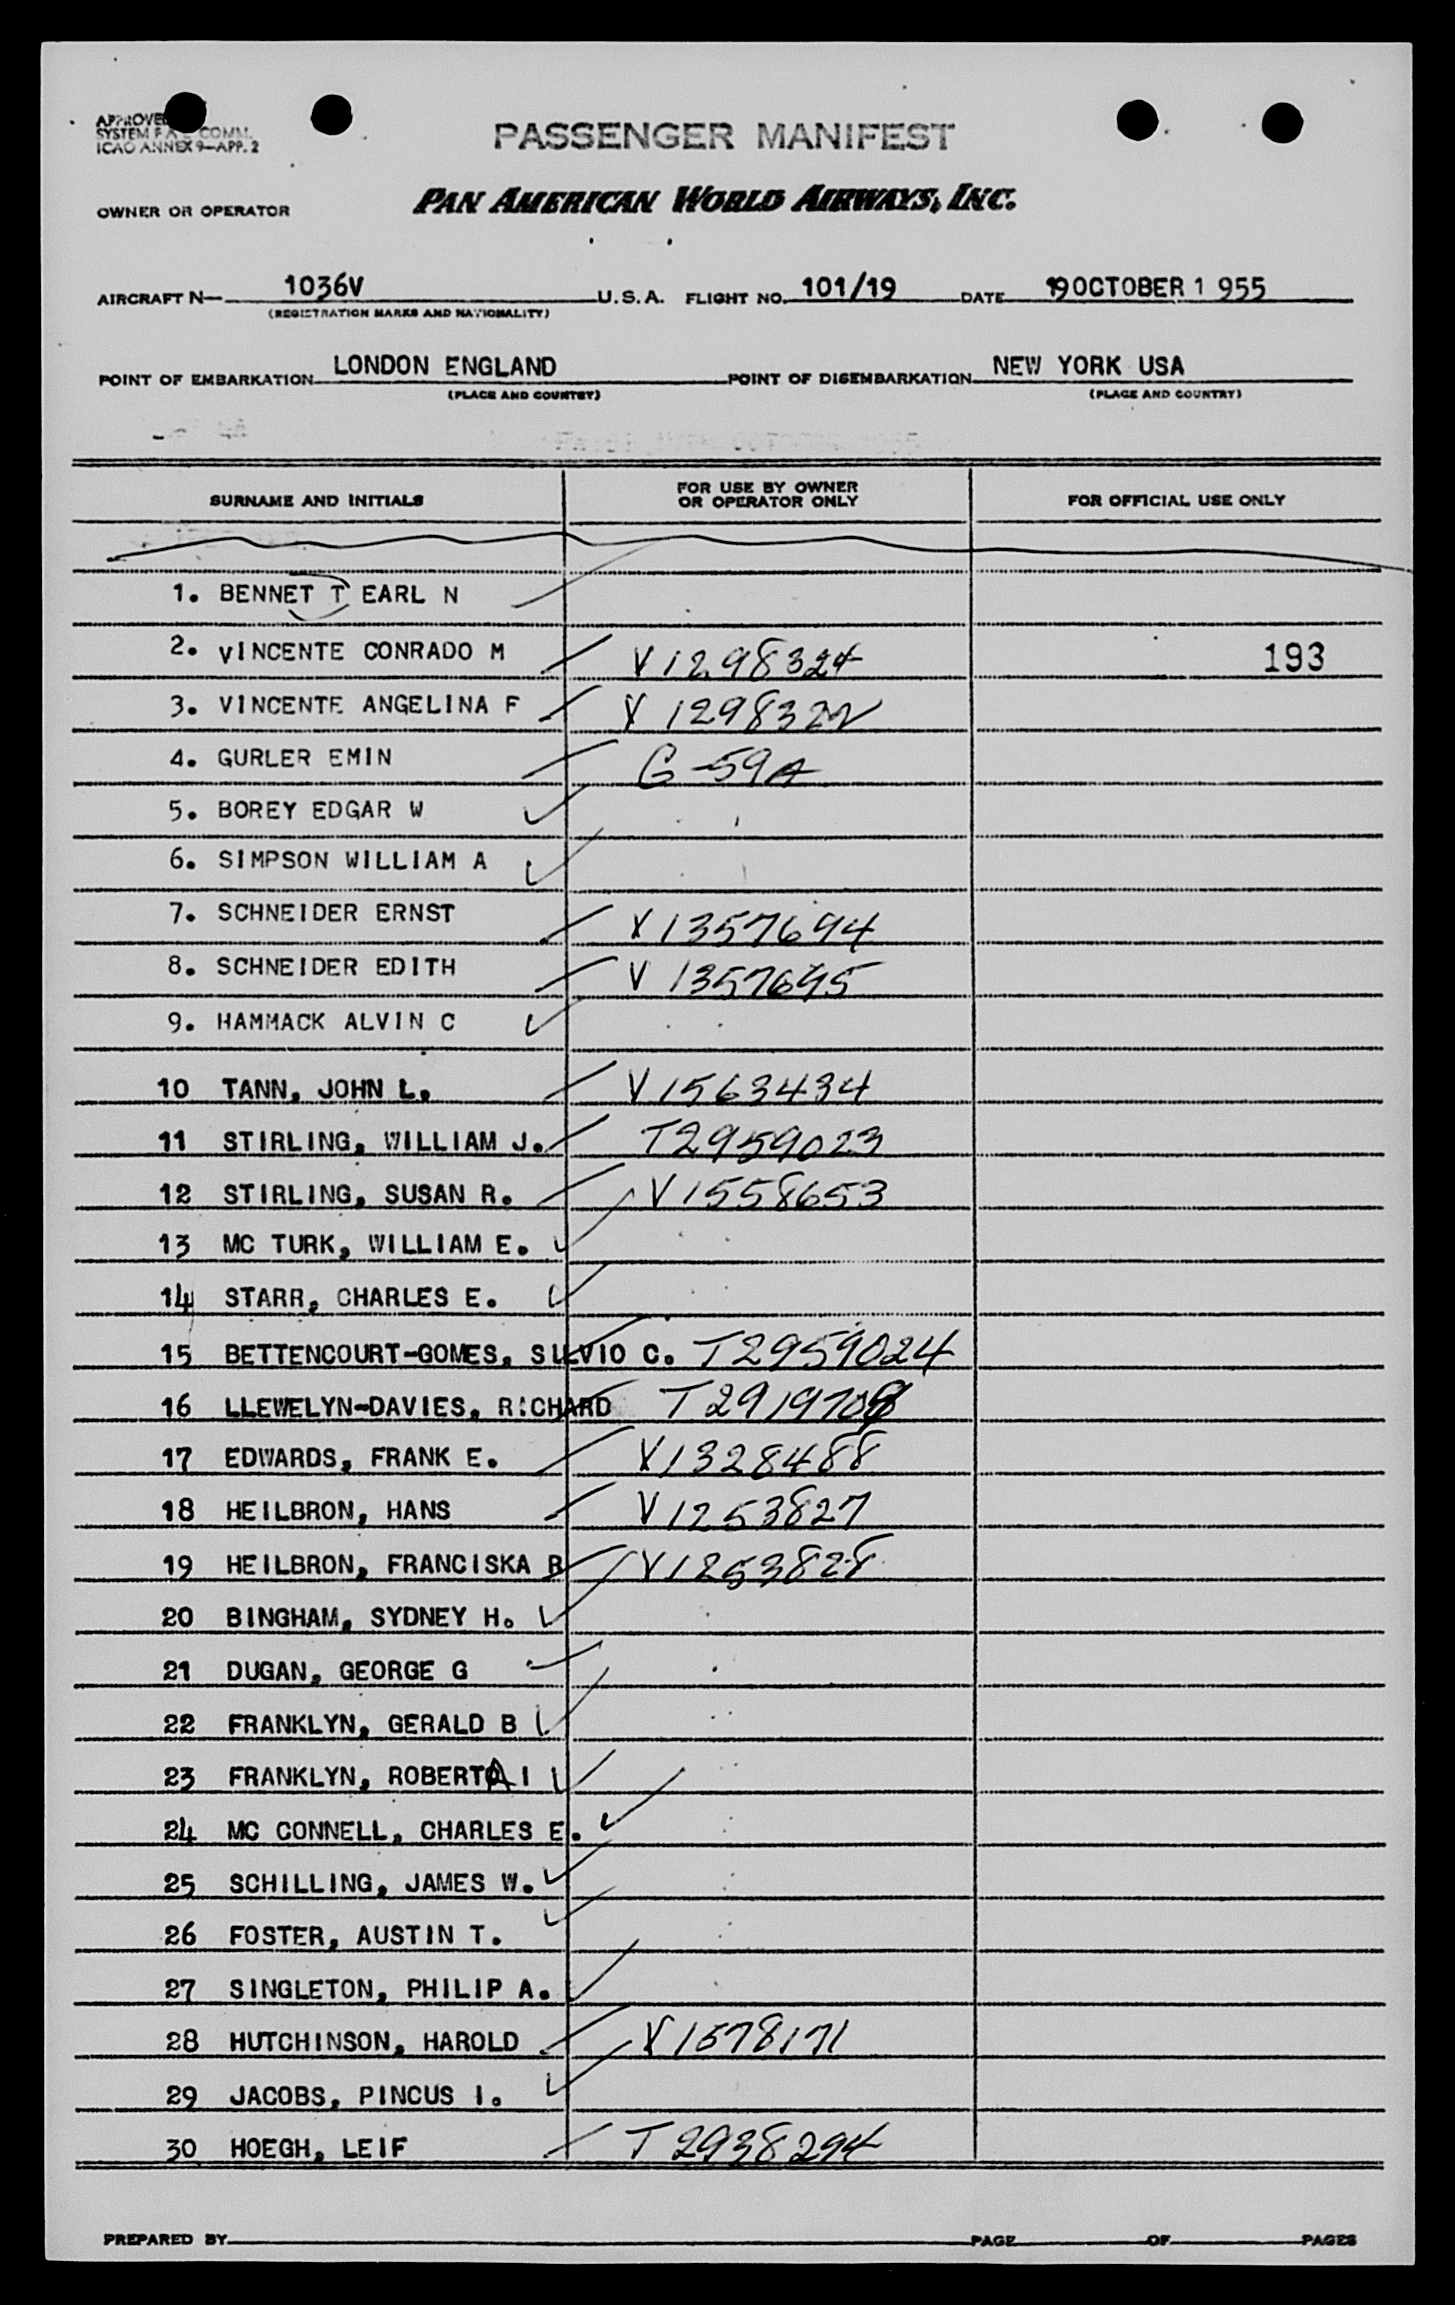 APPROVED
SYSTEM F A L COMM.
ICAO ANNEX 9—APP. 2
PASSENGER MANIFEST
OWNER OR OPERATOR PAN AMERICAN WORLD AIRWAYS, INC.
AIRCRAFT N— 1036V U.S.A. FLIGHT NO. 101/19 DATE 19OCTOBER 1 955
(REGISTRATION MARKS AND NATIONALITY)
POINT OF EMBARKATION LONDON ENGLAND POINT OF DISEMBARKATION NEW YORK USA
(PLACE AND COUNTRY) (PLACE AND COUNTRY)
SURNAME AND INITIALS FOR USE BY OWNER OR OPERATOR ONLY FOR OFFICIAL USE ONLY
1. BENNET T EARL N
2. VINCENTE CONRADO M V1298324 193
3. VINCENTE ANGELINA F V 1298322
4. GURLER EMIN G-59A
5. BOREY EDGAR W
6. SIMPSON WILLIAM A
7. SCHNEIDER ERNST V1357694
8. SCHNEIDER EDITH V 1357695
9. HAMMACK ALVIN C
10 TANN, JOHN L. V1563434
11 STIRLING, WILLIAM J. T2959023
12 STIRLING, SUSAN R. V1558653
13 MC TURK, WILLIAM E.
14 STARR, CHARLES E.
15 BETTENCOURT-GOMES, SILVIO C. T2959024
16 LLEWELYN-DAVIES, RICHARD T2919708
17 EDWARDS, FRANK E. V1328488
18 HEILBRON, HANS V1253827
19 HEILBRON, FRANCISKA R V1253828
20 BINGHAM, SYDNEY H.
21 DUGAN, GEORGE G
22 FRANKLYN, GERALD B
23 FRANKLYN, ROBERTA I
24 MC CONNELL, CHARLES E.
25 SCHILLING, JAMES W.
26 FOSTER, AUSTIN T.
27 SINGLETON, PHILIP A.
28 HUTCHINSON, HAROLD V1578171
29 JACOBS, PINCUS I.
30 HOEGH, LEIF T2938294
PREPARED BY PAGE OF PAGES